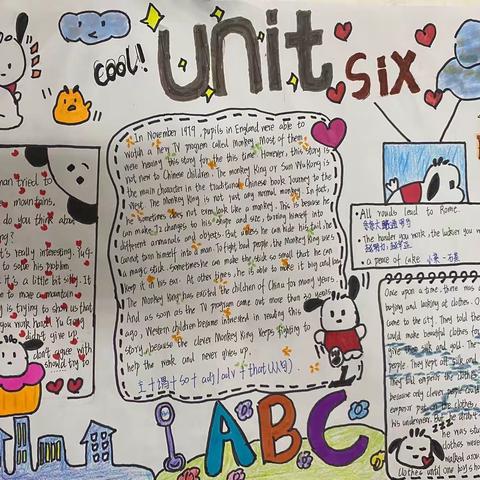 cool!
unit
six
In November 1979, pupils in England were able to
watch a new TV program called Monkey. Most of them
were hearing this story for the this time. However, this story is
not new to Chinese children. The monkey King or Sun Wukong is
the main character in the traditional Chinese book Journey to the
West. The Monkey King is not just any normal monkey. In fact,
he sometimes does not even look like a monkey. This is because he
can make 72 changes to his shape and size, turning himself into
different animals and objects. But unless he can hide his tail, he
cannot turn himself into a man. To fight bad people, the Monkey King uses
a magic stick. Sometimes he can make the stick so small that he can
keep it in his ear. At other times, he is able to make it big and long
The Monkey King has excited the children of China for many years.
And as soon as the TV program came out more than 30 years
ago, Western children became interested in reading this
story, because the clever Monkey King keeps fighting to
help the weak and never gives up.
so + adj / adv + that
man tried to
mountains.
do you think about
ing?
t's really interesting. Yu Gong
to solve his problem
it's a little bit silly. It
le to move a mountain
is trying to show us that
you work hard! Yu Gong
didn't give up
don't agree with
should try to
All roads lead to Rome.
The harder you work, the luckier you
a peace of cake 小菜一碟
Once upon a time, there was
buying and looking at clothes.
came to the city. They told the
could make beautiful clothes for
give silk and gold. The
people. They kept all silk and
They told emperor the clothes
because only clever people could
emperor put on the clothes,
his underwear. But he didn't
he was stu
clothes were
walked around
clothes until one boy sho
zzz
ABC